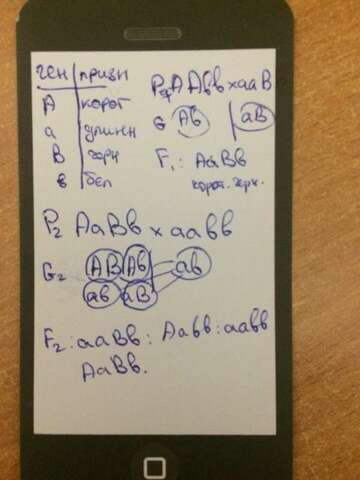 ген | призн
A корот
a длинн
B чёрн
в бел
P₁ AAвв x aaB
G Aв | aB
F₁: AaBв
корот. черн.
P₂ AaBв x aaвв
G₂ AB Aв aв
aв aB
F₂: aaBв : Aaвв : aaвв
AaBв.